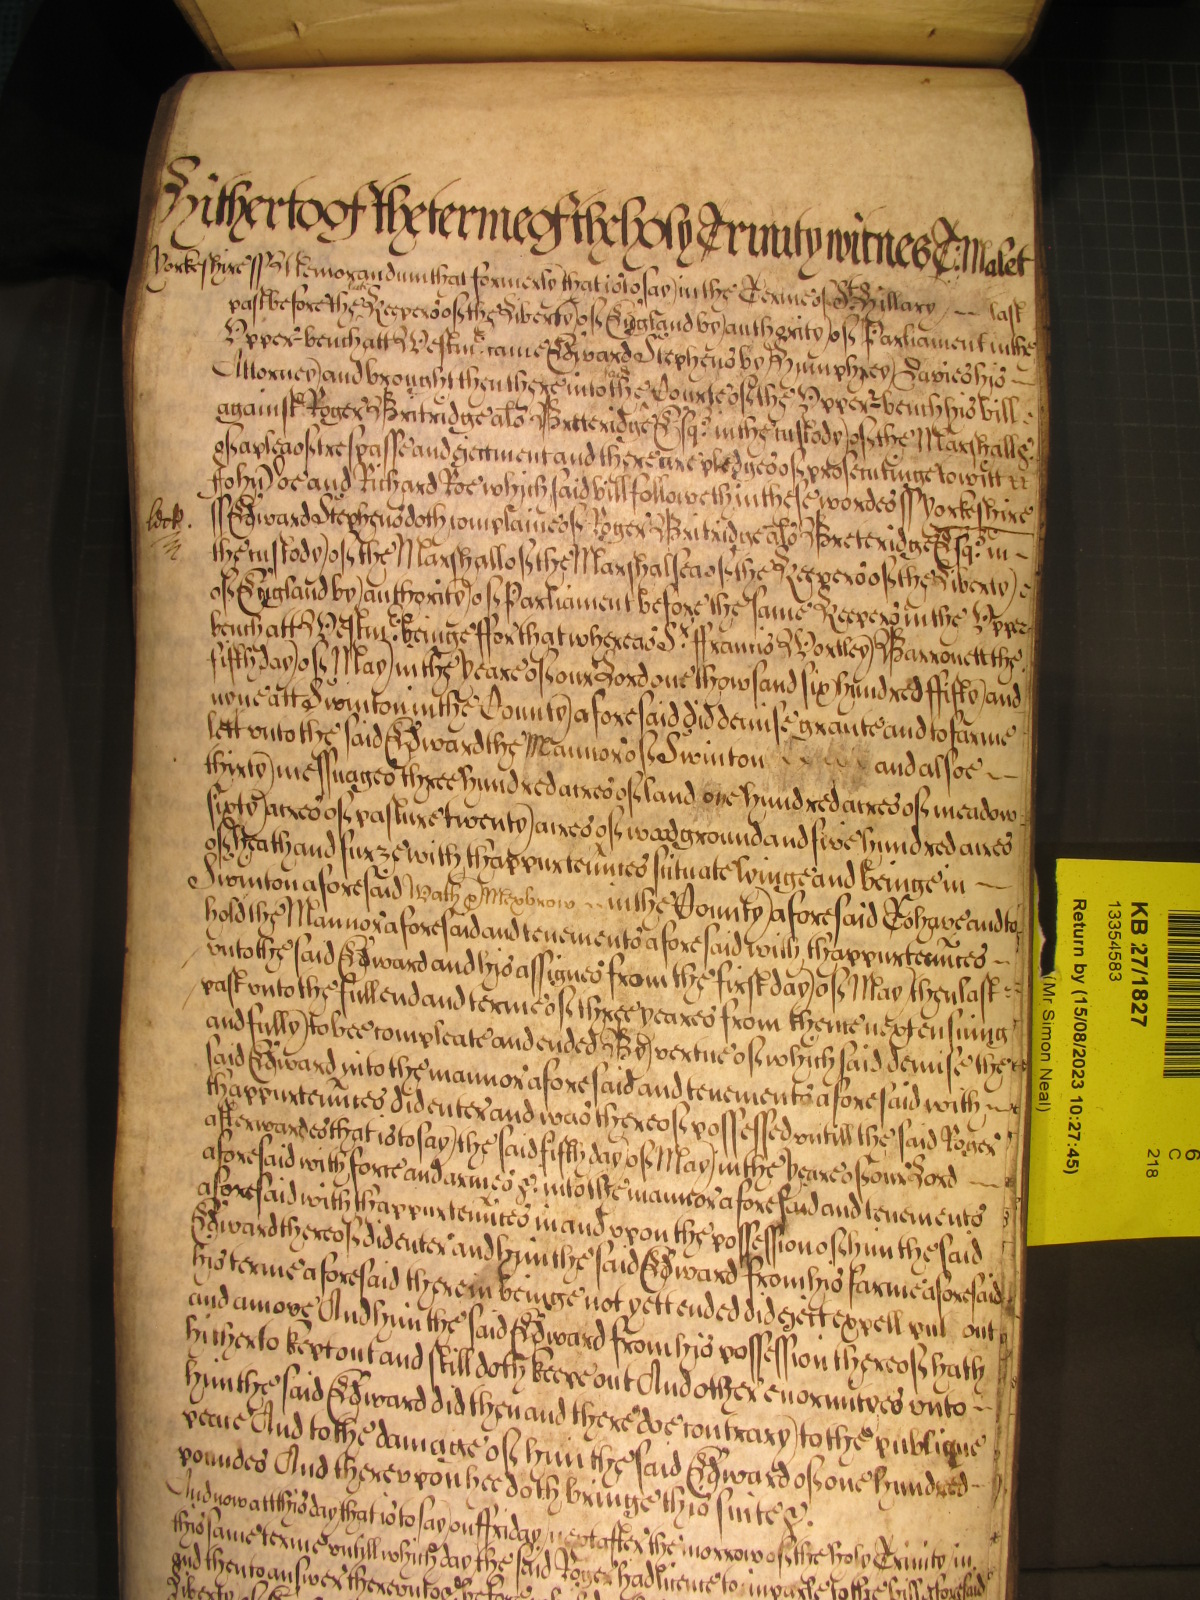 Hithertoo of the terme of the holy Trinity witnes T: Malet
Yorkeshire ss Memorandum that formerly that is to say in the Terme of St Hillary last
past before the Keepers of the Liberty of England by authority of Parliament in the
Upper bench att Westmr came Edward Stephens by Humphrey Davies his
Attorney and brought then there into the Courte of the Upper bench his bill
against Roger Britridge als Bretteridge Esqr in the custody of the Marshall &c
of a plea of trespasse and ejectment and there are pledges of prosecutinge to witt
John Doe and Richard Roe which said bill followeth in these wordes ss Yorkeshire
ss Edward Stephens doth complaine of Roger Britridge als Breteridge Esqr in
the custody of the Marshall of the Marshalsea of the Keepers of the Liberty
of England by authority of Parliament before the same Keepers in the Upper
bench att Westmr beinge ffor that whereas Sr ffrancis Wortley Barronett the
fifth day of May in the yeare of our Lord one thowsand six hundred ffifty and
nyne att Swinton in the County aforesaid did demise grante and to farme
lett unto the said Edward the Mannor of Swinton and alsoe
thirty messuages three hundred acres of land one hundred acres of meadow
sixty acres of pasture twenty acres of wood ground and five hundred acres
of heath and furze with thappurtennces situate lyinge and beinge in
Swinton aforesaid Wath & Mexbrow in the County aforesaid To have and to
hold the Mannor aforesaid and tenements aforesaid with thappurtennces
unto the said Edward and his assignes from the first day of May then last
past unto the full end and terme of three yeares from thence next ensuing
and fully to bee compleate and ended By vertue of which said demise the
said Edward into the mannor aforesaid and tenements aforesaid with
thappurtennces did enter and was thereof possessed untill the said Roger
afterwardes that is to say the said fifth day of May in the yeare of our Lord
aforesaid with force and armes &c into the mannor aforesaid and tenements
aforesaid with thappurtennces in and upon the possession of him the said
Edward thereof did enter and him the said Edward from his farme aforesaid
his terme aforesaid therein beinge not yett ended did eject expell put out
and amove And him the said Edward from his possession thereof hath
hitherto kept out and still doth keepe out And other enormityes unto
him the said Edward did then and there doe contrary to the publique
peace And to the damage of him the said Edward of one hundred
poundes And thereupon hee doth bringe this suite &c
And now att this day that is to say on ffriday next after the morrow of the holy Trinity in
this same terme untill which day the said Roger had licence to imparle to the bill aforesaid
and then to answer thereunto &c before
Liberty of
KB 27/1827
13354583
Return by (15/08/2023 10:27:45)
(Mr Simon Neal)
6
C
218